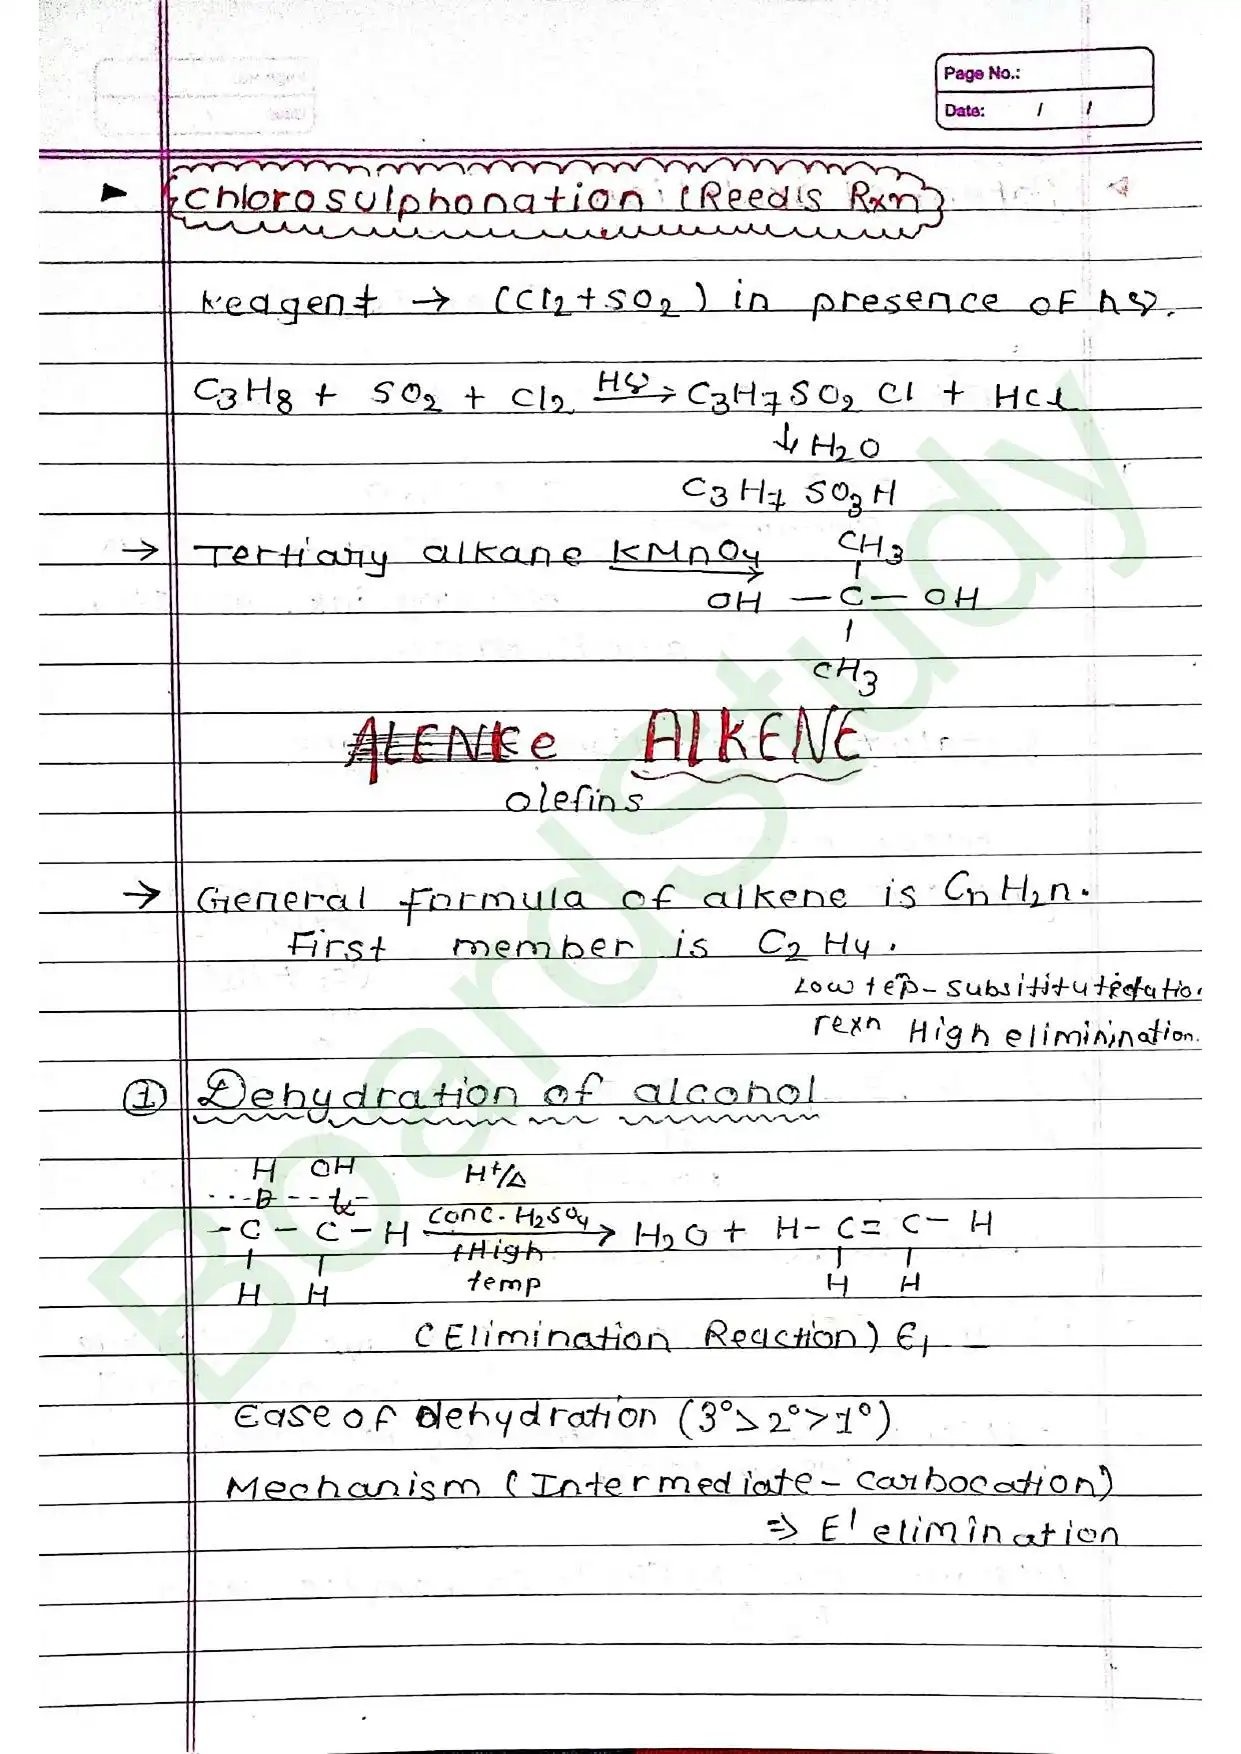 Page No.:
Date: / /
Chlorosulphonation (Reed's Rxn)
Reagent → (Cl2+SO2) in presence of hν.
C3H8 + SO2 + Cl2 Hν→ C3H7SO2Cl + HCl
↓ H2O
C3H7 SO3H
→ Tertiary alkane KMnO4→ CH3
OH — C — OH
CH3
ALENKe ALKENE
Olefins
→ General formula of alkene is CnH2n.
First member is C2H4.
Low tep - subsititu
rexn High eliminination.
① Dehydration of alcohol
H OH H+/Δ
- C - C - H Conc. H2SO4→ H2O + H - C = C - H
High
H H temp H H
(Elimination Reaction) E1
Ease of dehydration (3°>2°>1°)
Mechanism (Intermediate - carbocation)
⇒ E1 elimination
BoardStudy